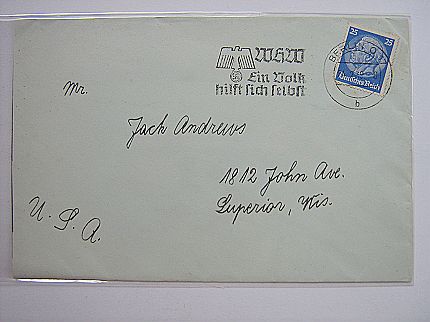 WHW
Ein Volk
hilft sich selbst
25 25
Deutsches Reich
b
Mr.
Jack Andrews
1812 John Ave.
Superior, Wis.
U. S. A.